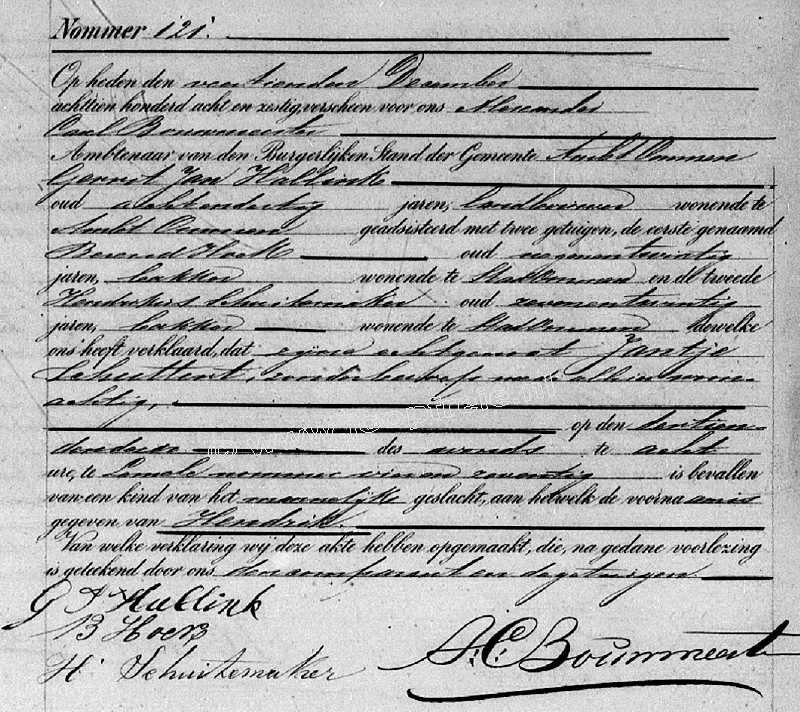 Nommer 121.
Op heden den veertienden December
achttien honderd acht en zestig, verscheen voor ons Alexander
Carl Bouwmeester
Ambtenaar van den Burgerlijken Stand der Gemeente Ambt Ommen
Gerrit Jan Hallink
oud achtendertig jaren, landbouwer wonende te
Ambt Ommen geadsisteerd met twee getuigen, de eerste genaamd
Berend Hoek oud negenentwintig
jaren, bakker wonende te Stad Ommen en de tweede
Hendrikus Schuitemaker oud zevenentwintig
jaren, bakker wonende te Stad Ommen dewelke
ons heeft verklaard, dat zijne echtgenoot Jantje
Schuttert, zonder beroep mede alhier woon
achtig,
op den dertien
den dezer des avonds te acht
ure, te Lemele nommer vier en zeventig is bevallen
van een kind van het mannelijke geslacht, aan hetwelk de voornaam is
gegeven van Hendrik.
Van welke verklaring wij deze akte hebben opgemaakt, die, na gedane voorlezing
is geteekend door ons den comparant en de getuigen.
G J Hallink
B Hoek
H: Schuitemaker
A. C. Bouwmeester